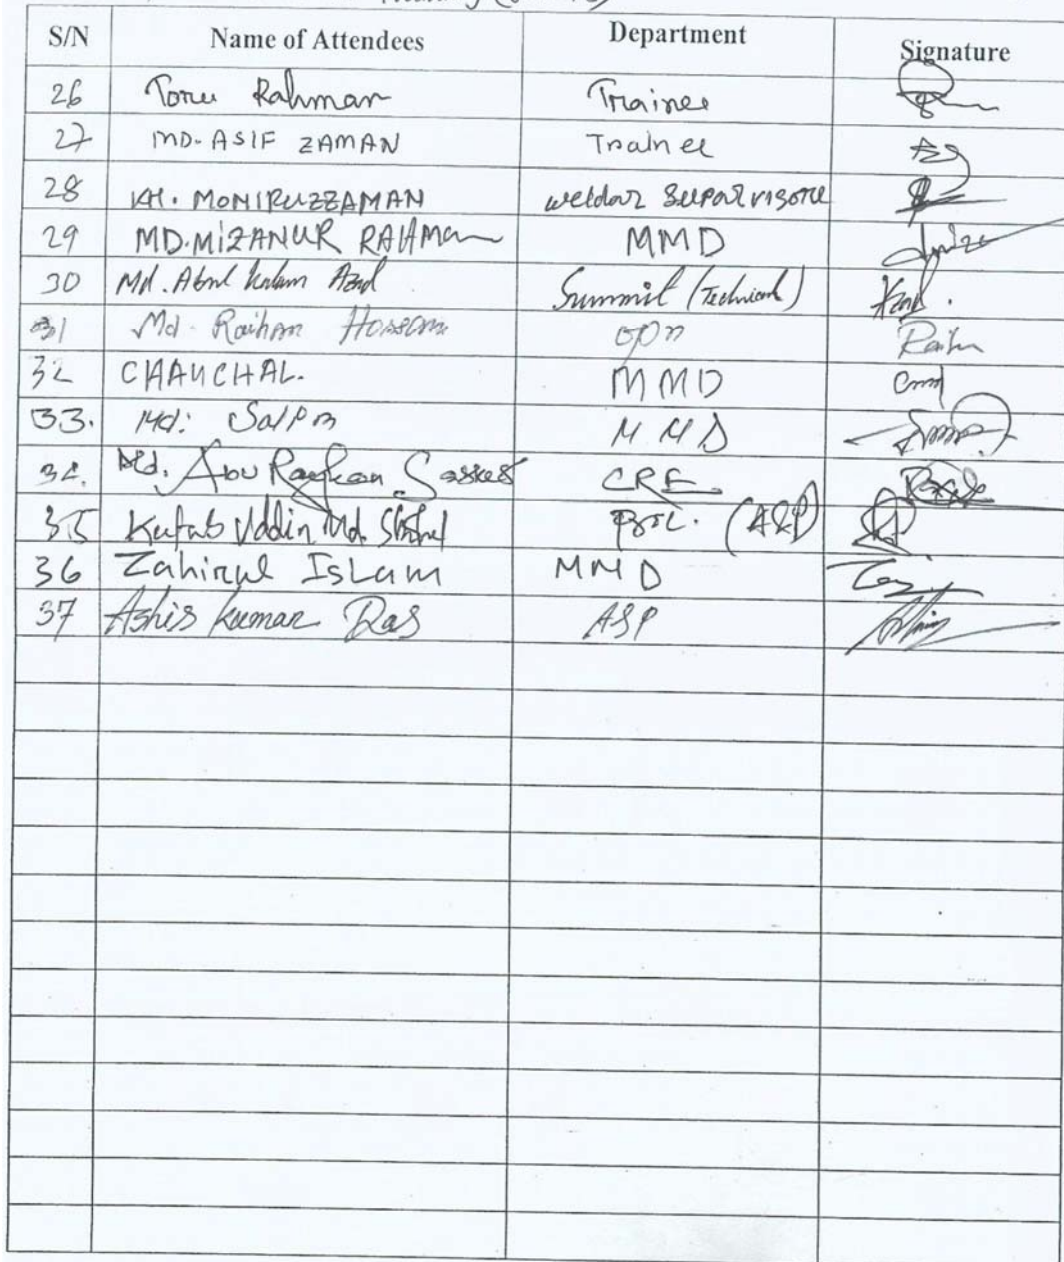 S/N Name of Attendees Department Signature
26 Toru Rahman Trainee
27 MD. ASIF ZAMAN Trainee
28 KH. MONIRUZZAMAN weldar Suparvisore
29 MD. MiZANUR RAHMan MMD
30 Md. Abul Kalam Azad Summit (Technical)
31 Md. Raihan Hossain opn
32 CHANCHAL. MMD
33. Md: MMD
34. Md. Abu Rayhan CRE
35 Kutub Uddin Md. (A&P)
36 Zahirul Islam MMD
37 Ashis Kumar Das ASP